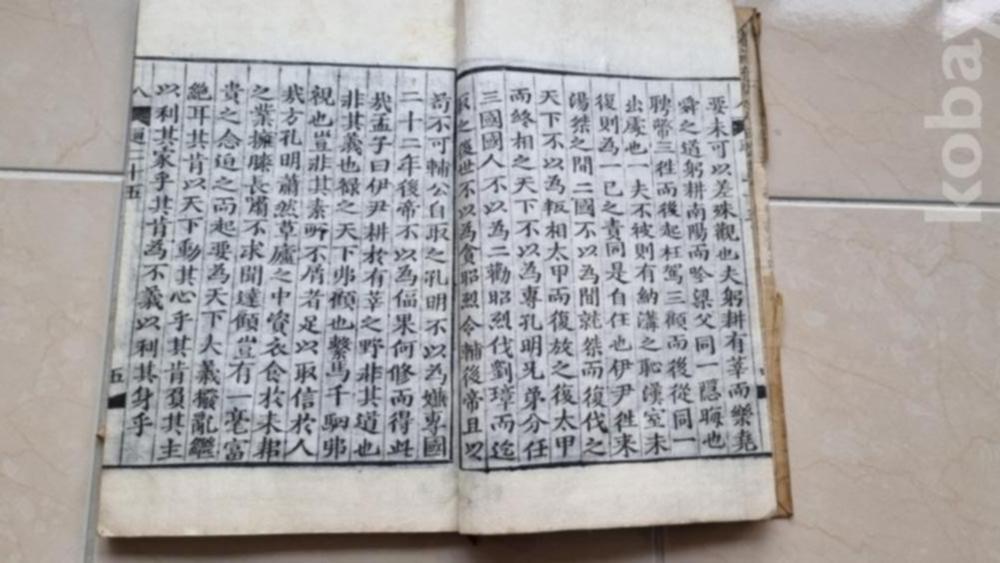 要未可以差殊觀也夫躬耕有莘而樂堯
舜之道躬耕南陽而吟梁父同一隱晦也
聘幣三徃而後起枉駕三顧而後從同一
出處也 夫不彼則有納溝之恥漢室未
復則為一 已之責同是自任也伊尹徃來
湯桀之間二國不以為間就桀而復伐之
天下不以為叛相太甲而復放之復太甲
而終相之天下不以為專孔明兄弟分任
三國國人不以為二勸昭烈伐劉璋而迄
取之後世不以為貪昭烈令輔後帝且以
苟不可輔公自取之孔明不以為嫌專國
二十二年後帝不以為偪果何修而得此
哉孟子曰伊尹耕於有莘之野非其道也
非其義也祿之天下弗顧也繫馬千駟弗
視也豈非其素所不屑者足以取信於人
哉方孔明蕭然草廬之中資衣食於耒耜
之業擁膝長嘯不求聞達顧豈有一毫富
貴之念迫之而起要為天下大義撥亂繼
絕耳其肯以天下動其心乎其肯負其主
以利其家乎其肯為不義以利其身乎
八 二十五 五
kobay